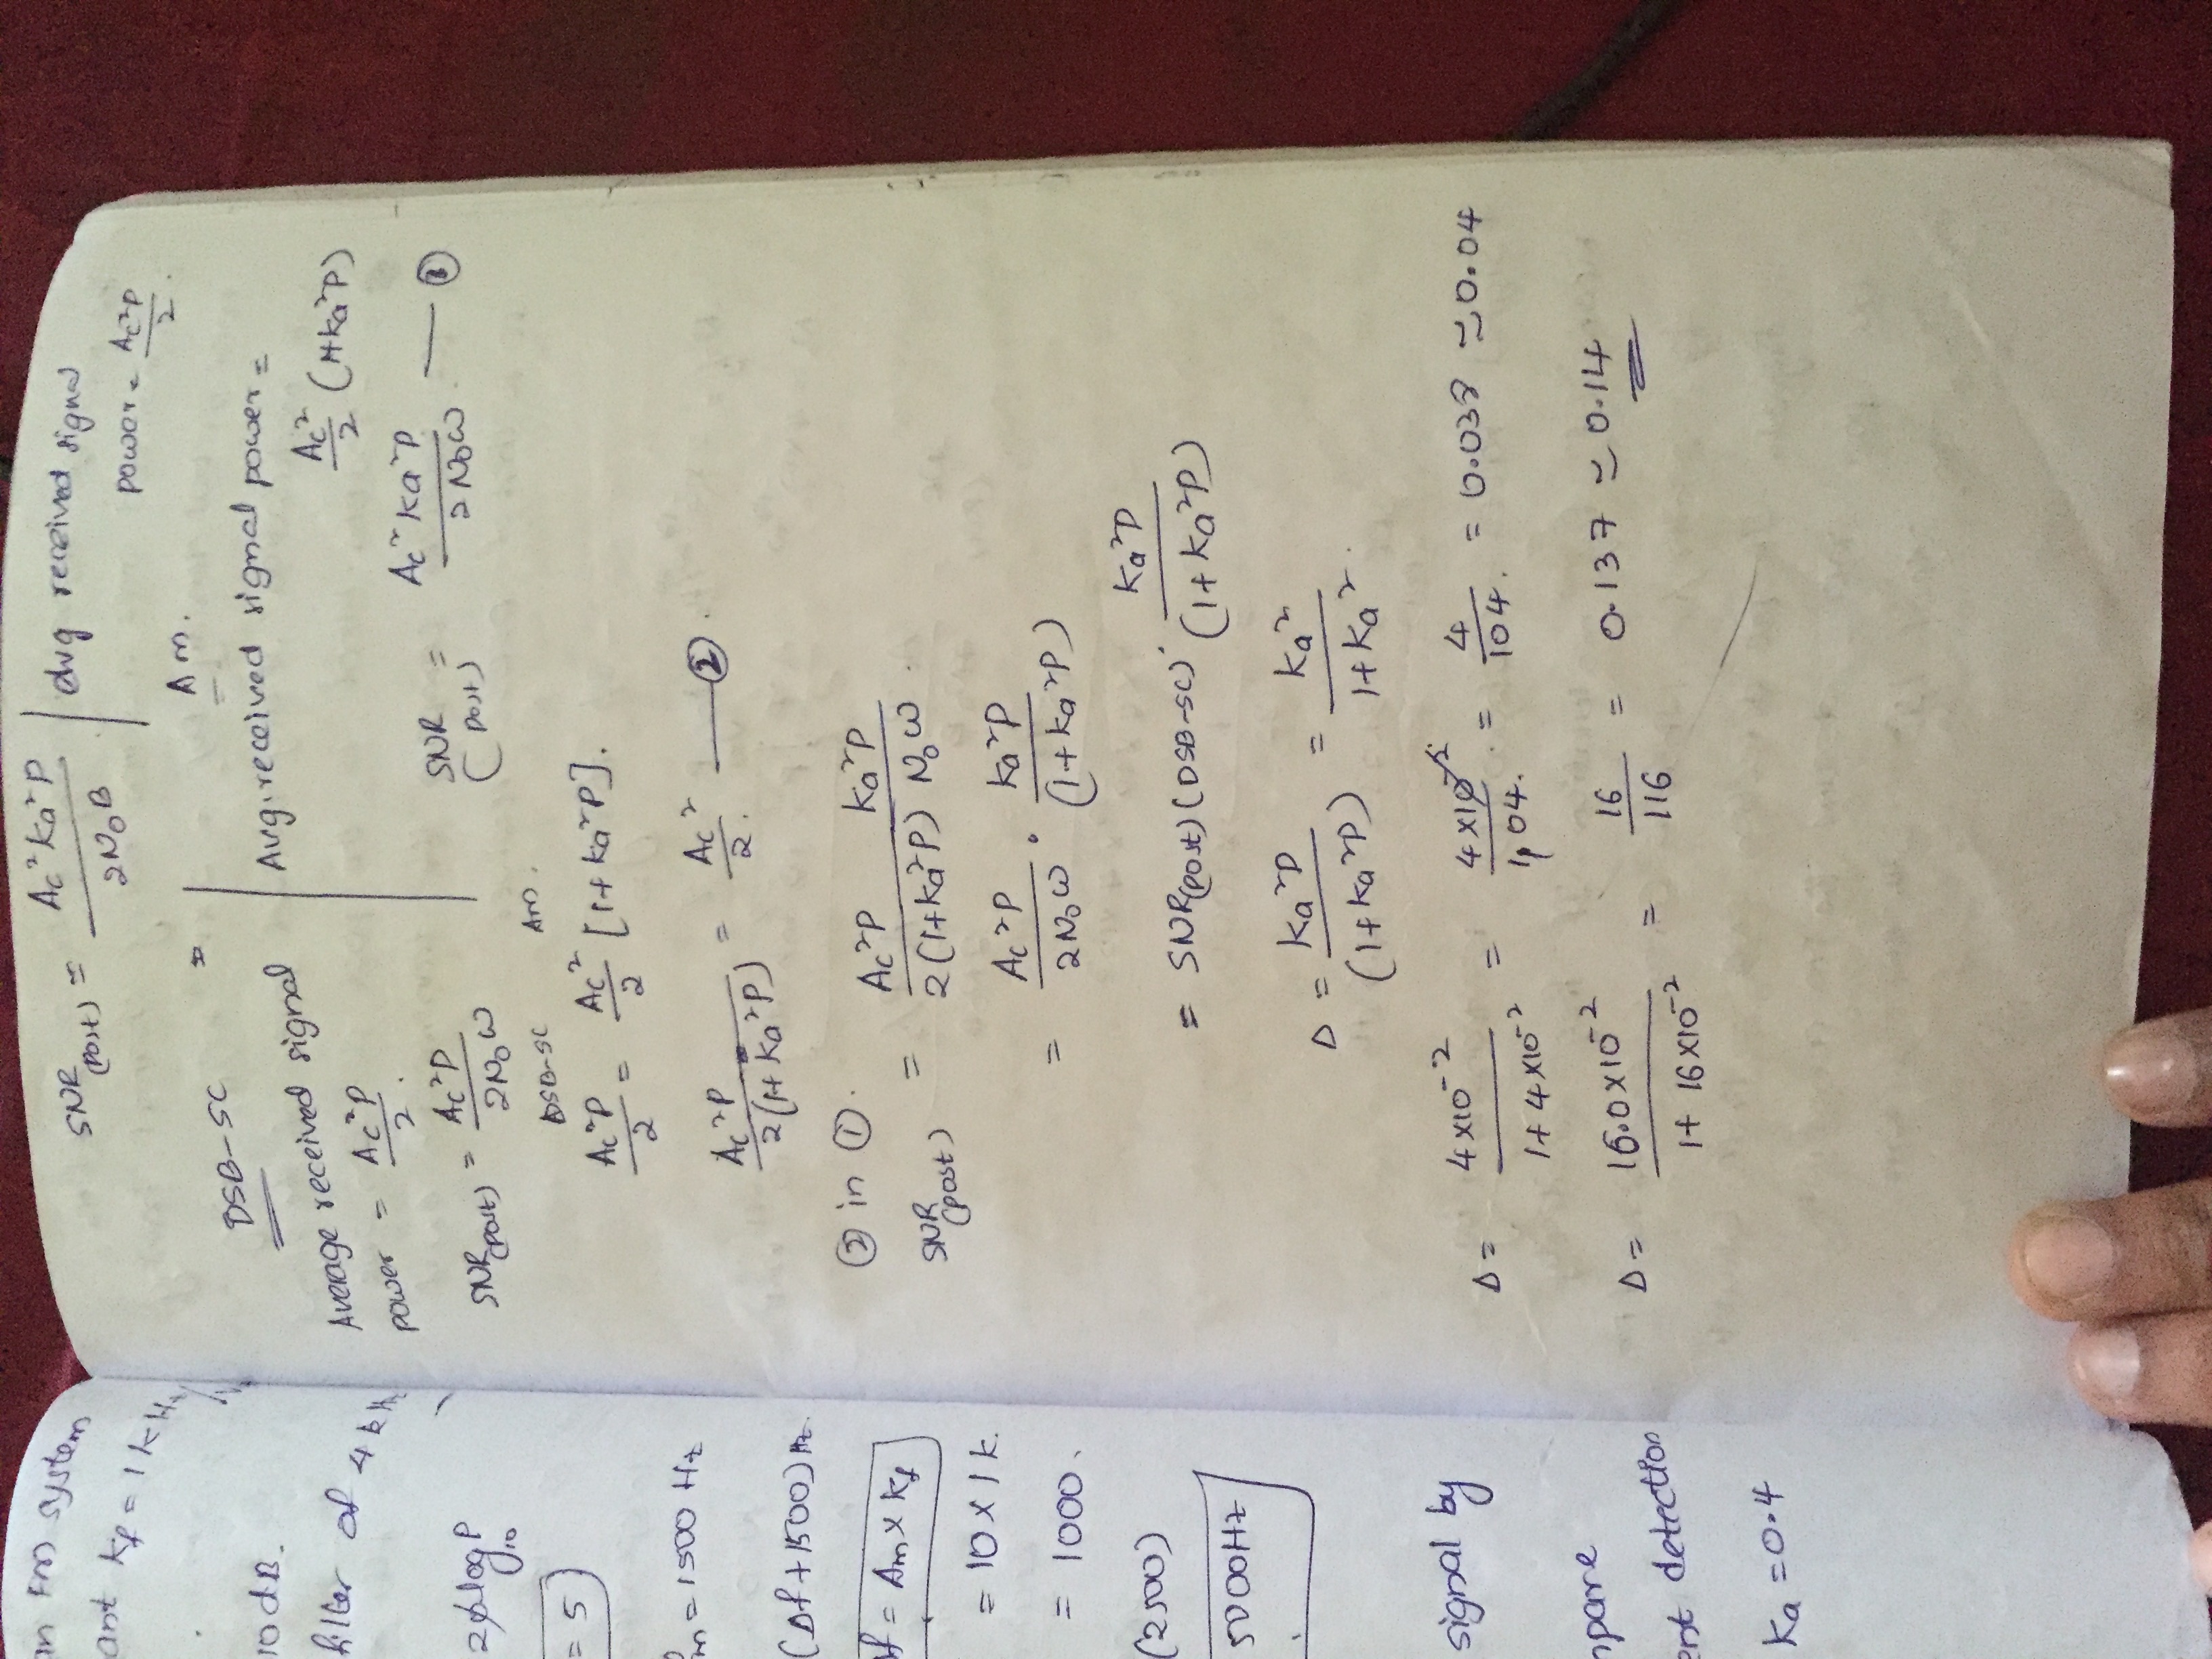 an FM system
ant kf = 1 kHz/
10dB.
filter of 4 kHz
log₁₀P
= 5
m = 1500 Hz
(Δf + 1500) Hz.
f = Am × kf
= 10 × 1 k.
= 1000.
(2500)
5000Hz
signal by
mpare
ent detection
Ka = 0.4
SNR(post) = Ac²Ka²P / 2N₀B | Avg received signal
power = Ac²P / 2.
DSB-SC =
Average received signal
power = Ac²P / 2.
SNR(post) = Ac²P / 2N₀W
Am.
Avg. received signal power =
Ac²/2 (1+Ka²P)
SNR(post) = Ac²Ka²P / 2N₀W — ①
DSB-SC Am.
Ac²P/2 = Ac²/2 [1+Ka²P].
Ac²P / 2(1+Ka²P) = Ac²/2. — ②.
② in ①.
SNR(post) = Ac²P Ka²P / 2(1+Ka²P) N₀W.
= Ac²P / 2N₀W · Ka²P / (1+Ka²P)
= SNR(post)(DSB-SC) · Ka²P / (1+Ka²P)
Δ = Ka²P / (1+Ka²P) = Ka² / 1+Ka².
Δ = 4×10⁻² / 1+4×10⁻² = 4×10⁻² / 1.04. = 4 / 104. = 0.038 ≃ 0.04
Δ = 16.0×10⁻² / 1+16×10⁻² = 16 / 116 = 0.137 ≃ 0.14